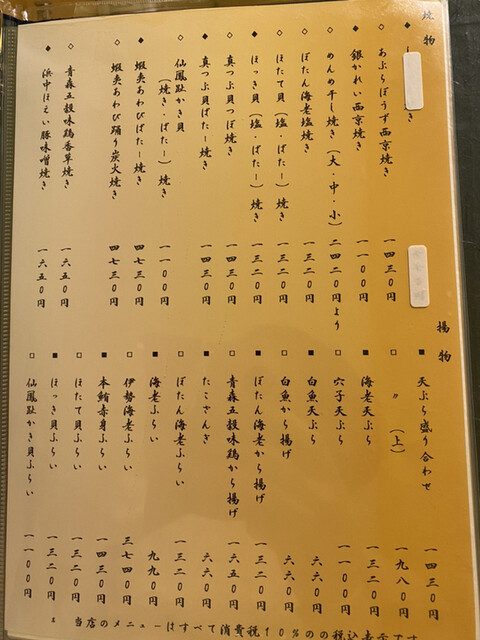 焼物
◆ き
◇ あぶらぼうず西京焼き 一四三〇円
◆ 銀かれい西京焼き 一一〇〇円
◇ めんめ干し焼き(大・中・小) 二四二〇円より
◇ ぼたん海老塩焼き 一三二〇円
◇ ほたて貝(塩・ばたー)焼き 一三二〇円
◆ ほっき貝(塩・ばたー)焼き 一三二〇円
◇ 真つぶ貝つぼ焼き 一四三〇円
◆ 真つぶ貝ばたー焼き 一四三〇円
◇ 仙鳳趾かき貝(焼き・ばたー)焼き 一一〇〇円
◆ 蝦夷あわびばたー焼き 四七三〇円
◇ 蝦夷あわび踊り炭火焼き 四七三〇円
◇ 青森五穀味鶏香草焼き 一六五〇円
◆ 浜中ほえい豚味噌焼き 一六五〇円
揚物
■ 天ぷら盛り合わせ 一四三〇円
□ 〃(上) 一九八〇円
■ 海老天ぷら 一三二〇円
□ 穴子天ぷら 一一〇〇円
■ 白魚天ぷら 六六〇円
□ 白魚から揚げ 六六〇円
■ ぼたん海老から揚げ 一三二〇円
□ 青森五穀味鶏から揚げ 一六五〇円
■ たこざんぎ 六六〇円
□ ぼたん海老ふらい 一三二〇円
■ 海老ふらい 九九〇円
□ 伊勢海老ふらい 三七四〇円
■ 本鮪赤身ふらい 一四三〇円
□ ほたて貝ふらい 一三二〇円
■ ほっき貝ふらい 一三二〇円
□ 仙鳳趾かき貝ふらい 一一〇〇円
当店のメニューはすべて消費税10%の税込表示です